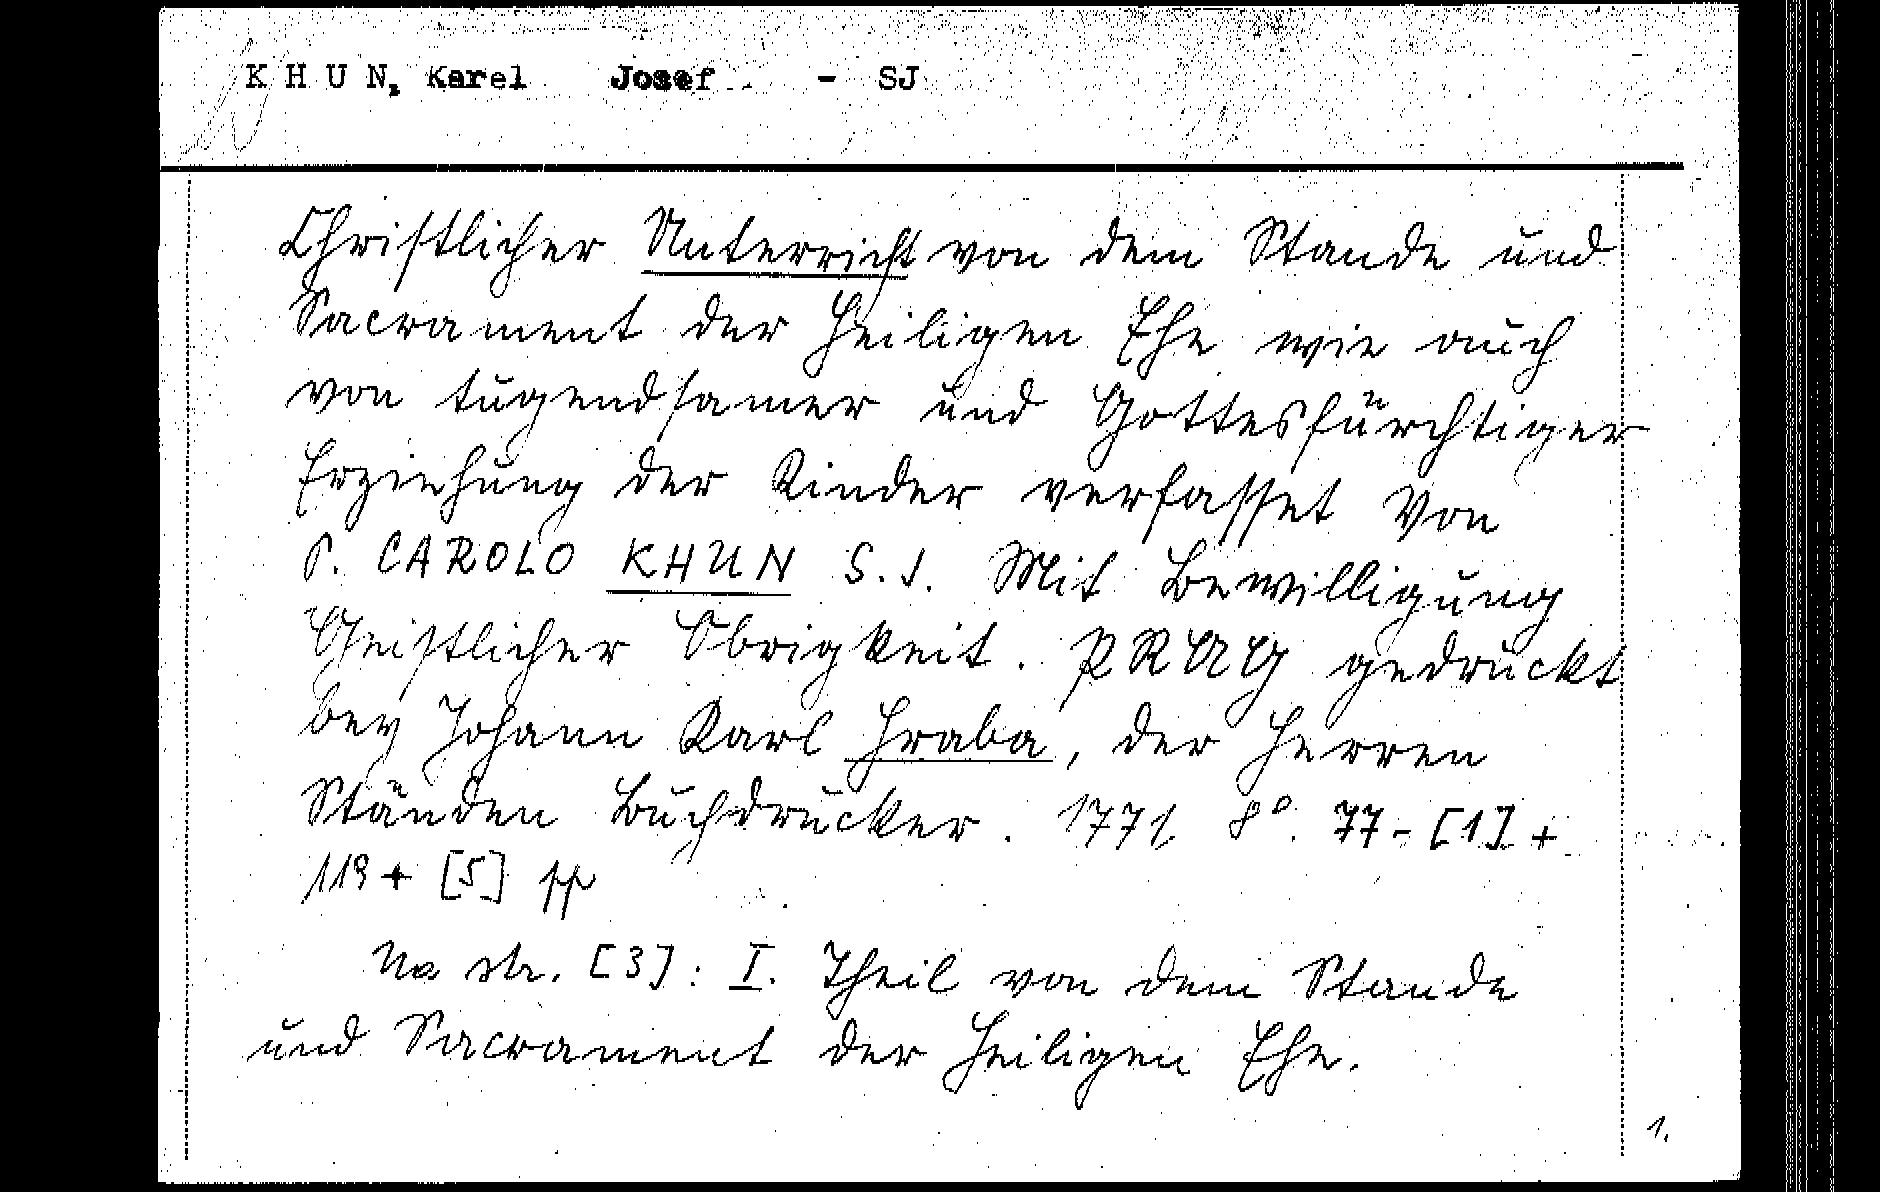 KHUN, Karel Josef - SJ
Christlicher Unterricht von dem Stande und
Sacrament der Heiligen Ehe wie auch
von tugendsamer und Gottesfürchtiger
Erziehung der Kinder verfasset Von
P. CAROLO KHUN S.J. Mit Bewilligung
Geistlicher Obrigkeit. PRAG gedruckt
bey Johann Karl Hraba, der Herren
Ständen Buchdrucker. 1771. 8°. 77-[1]+
119+[5] pp
Na str. [3]: I. Theil von dem Stande
und Sacrament der Heiligen Ehe.
1.